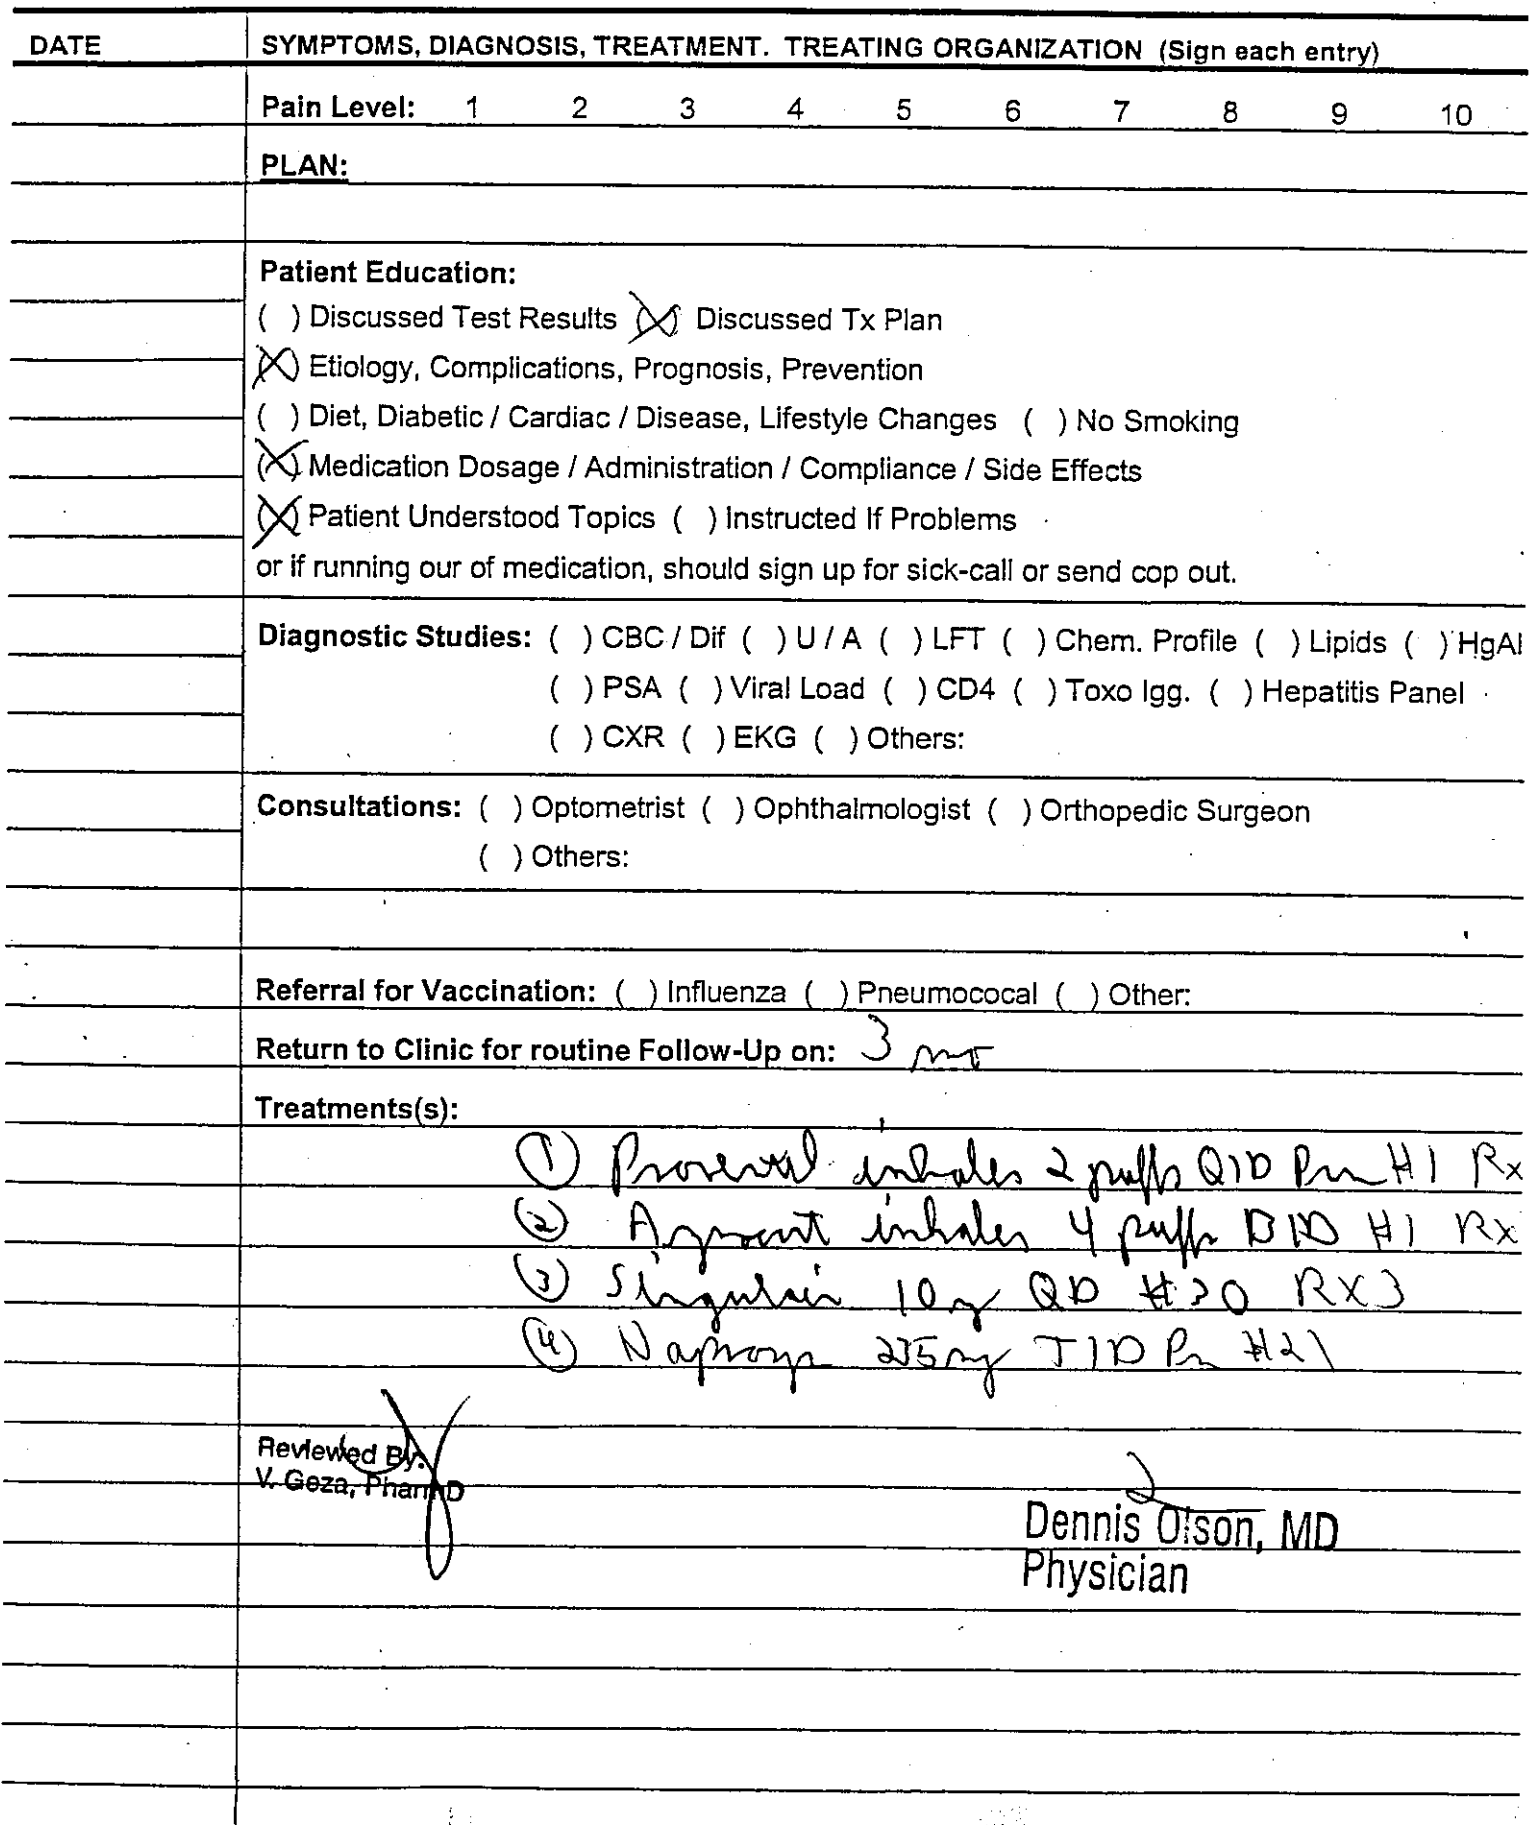 DATE SYMPTOMS, DIAGNOSIS, TREATMENT. TREATING ORGANIZATION (Sign each entry)
Pain Level: 1 2 3 4 5 6 7 8 9 10
PLAN:
Patient Education:
( ) Discussed Test Results (X) Discussed Tx Plan
(X) Etiology, Complications, Prognosis, Prevention
( ) Diet, Diabetic / Cardiac / Disease, Lifestyle Changes ( ) No Smoking
(X) Medication Dosage / Administration / Compliance / Side Effects
(X) Patient Understood Topics ( ) Instructed If Problems
or if running our of medication, should sign up for sick-call or send cop out.
Diagnostic Studies: ( ) CBC / Dif ( ) U / A ( ) LFT ( ) Chem. Profile ( ) Lipids ( ) HgAI
( ) PSA ( ) Viral Load ( ) CD4 ( ) Toxo Igg. ( ) Hepatitis Panel
( ) CXR ( ) EKG ( ) Others:
Consultations: ( ) Optometrist ( ) Ophthalmologist ( ) Orthopedic Surgeon
( ) Others:
Referral for Vaccination: ( ) Influenza ( ) Pneumococal ( ) Other:
Return to Clinic for routine Follow-Up on: 3
Treatments(s):
① Proventil inhaler 2 puffs QID Prn #1 Rx
② inhaler 4 puffs BID #1 Rx
③ Singulair 10mg QD #30 RX3
④ Naprosyn TID Prn #21
Reviewed By:
V. Geza, PharmD
Dennis Olson, MD
Physician